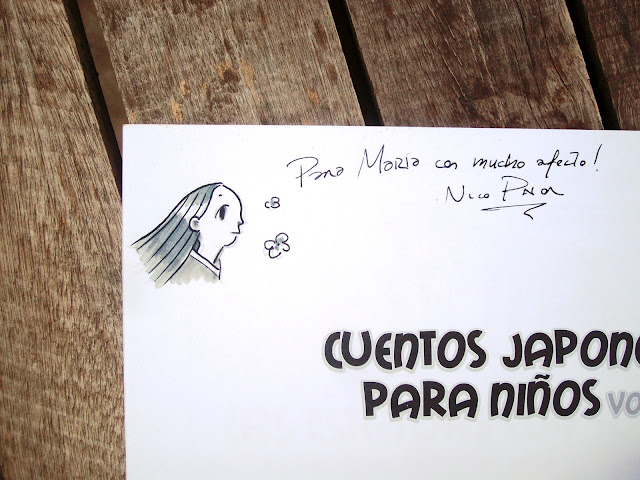 Para María con mucho afecto!
Nico
CUENTOS JAPONE
PARA NIÑOS VO